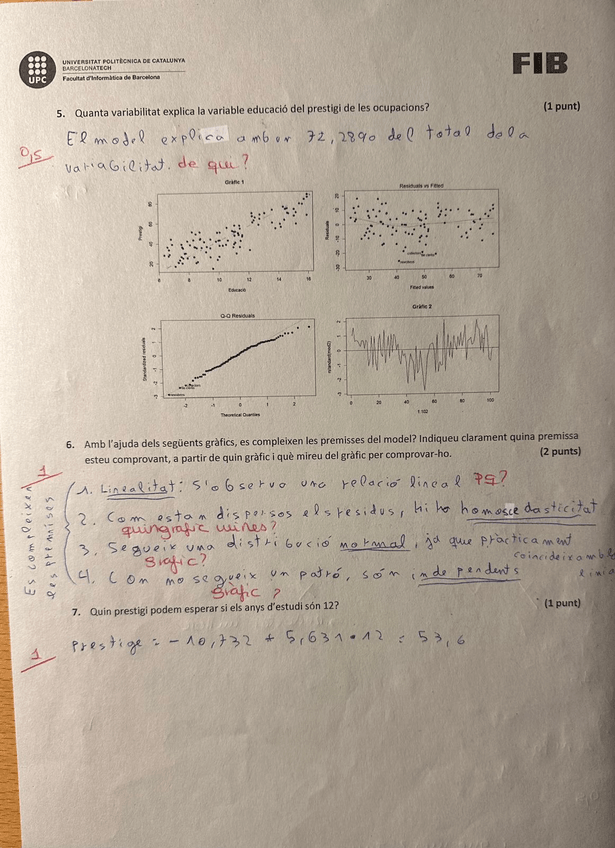 UNIVERSITAT POLITÈCNICA DE CATALUNYA
BARCELONATECH
Facultat d'Informàtica de Barcelona
UPC
FIB
5. Quanta variabilitat explica la variable educació del prestigi de les ocupacions? (1 punt)
El model explica amb un 72,28% del total de la
0,5
variabilitat. de qui?
Gràfic 1
Prestigi
20 40 60 80
6 8 10 12 14 16
Educació
Residuals vs Fitted
Residuals
-30 -20 -10 0 10 20
30 40 50 60 70
Fitted values
Q-Q Residuals
Standardized residuals
-3 -2 -1 0 1 2
-2 -1 0 1 2
Theoretical Quantiles
Gràfic 2
rstandard(mod2)
-3 -2 -1 0 1 2
0 20 40 60 80 100
1:102
6. Amb l'ajuda dels següents gràfics, es compleixen les premisses del model? Indiqueu clarament quina premissa
esteu comprovant, a partir de quin gràfic i què mireu del gràfic per comprovar-ho. (2 punts)
1
Es compleixen
les premises
1. Linealitat: s'observa una relació lineal
2. Com estan dispersos els residus, hi ha homoscedasticitat
quin gràfic mires?
3. Segueix una distribució normal, ja que pràcticament
coincideix amb la
línia
Gràfic?
4. Com no segueix un patró, són independents
Gràfic?
7. Quin prestigi podem esperar si els anys d'estudi són 12? (1 punt)
1
Prestige = -10,732 + 5,631 • 12 = 53,6